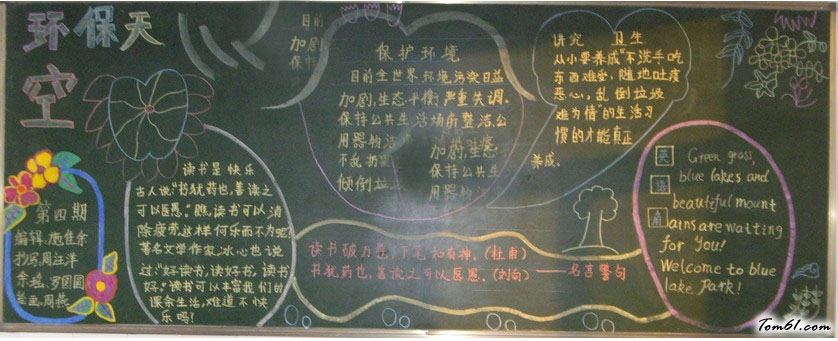 环保天
空
第四期
编辑:施佳余
抄写:周汪洋
绘画:周燕
读书是快乐
古人说:“书犹药也,善读之
可以医愚.”瞧,读书可以消
除疲劳,这样何乐而不为呢?
著名文学作家,冰心也说
过:“好读书,读好书,读书
好.”读书可以丰富我们的
课余生活,难道不快
乐吗?
目前
加剧
保持
保护环境
目前全世界环境污染日益
加剧,生态平衡严重失调.
保持公共生活场所整洁,公
用器物
不乱扔
倾倒垃
加剧,生态
保持公共生
用器物
讲究 卫生
从小要养成“不洗手吃
东西难受,随地吐痰
恶心,乱倒垃圾
难为情”的生活习
惯的才能真正
养成。
读书破万卷,下笔如有神。(杜甫)
书犹药也,善读之可以医愚。(刘向)——名言警句
英
语
角
Green grass,
blue lakes and
beautiful mount
ains are waiting
for you!
Welcome to blue
lake Park!
Tom61.com